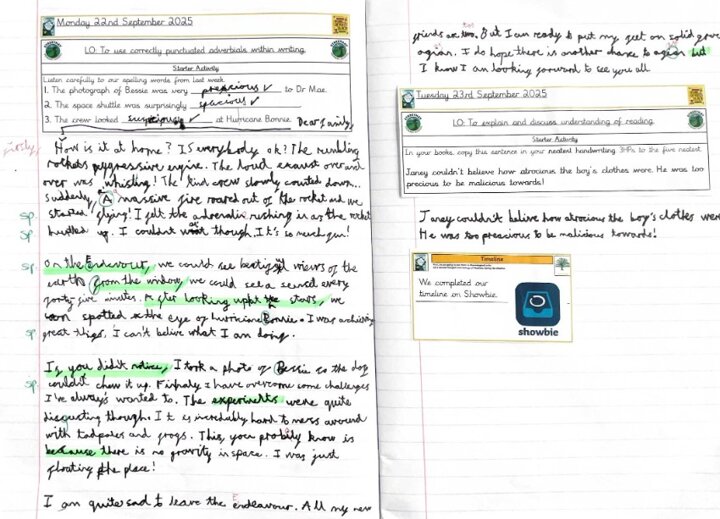 Monday 22nd September 2025
LO: To use correctly punctuated adverbials within writing.
Starter Activity
Listen carefully to our spelling words from last week.
1. The photograph of Bessie was very precious ✓ to Dr Mae.
2. The space shuttle was surprisingly spacious ✓
3. The crew looked suspicious ✓ at Hurricane Bonnie.
Dear family,
How is it at home? Is everybody ok? The rumbling
rockets progressive engine. The loud exaust over and
over was whisling! The kind crew slowly counted down...
suddenly A massive fire roared out of the rocket and we
started flying! I felt the adrenalie rushing in as the rocket
sp. hurtled up. I couldn't wat though. It's so much fun!
sp.
On the Endeavour, we could see beatiful views of the
earth. From the window, we could see a sunset every
forty five inutes. After looking up at the stars, we
spotted the eye of hurricane Bonnie. I was achieving
sp. great thigs. I can't belive what I am doing.
If you didn't notice, I took a photo of Bessie so the dog
sp. couldn't chew it up. Finhaly I have overcome some challenges
I've always wanted to. The experimelts were quite
disgusting though. It is incredibly hard to mess around
with tadpoles and frogs. This, you probbly know is
because there is no gravity in space. I was just
floating the place!
I am quite sad to leave the Endeavour. All my new
friends are too. But I am ready to put my feet on solid
again. I do hope there is another chance to again but
I know I am looking forward to see you all
Tuesday 23rd September 2025
LO: To explain and discuss understanding of reading.
Starter Activity
In your books, copy this sentence in your neatest handwriting. 3HPs to the five neatest.
Janey couldn't believe how atrocious the boy's clothes were. He was too
precious to be malicious towards!
Janey couldn't belive how atrocious the boy's clothes were
He was too preacious to be malicious towards!
Timeline
We completed our
timeline on Showbie.
showbie